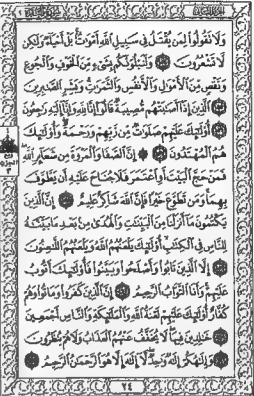 ولا تقولوا لمن يقتل في سبيل الله أموات بل أحياء ولكن
لا تشعرون ولنبلونكم بشيء من الخوف والجوع
ونقص من الأموال والأنفس والثمرات وبشر الصابرين
الذين إذا أصابتهم مصيبة قالوا إنا لله وإنا إليه راجعون
أولئك عليهم صلوات من ربهم ورحمة وأولئك
هم المهتدون إن الصفا والمروة من شعائر الله
فمن حج البيت أو اعتمر فلا جناح عليه أن يطوف
بهما ومن تطوع خيرا فإن الله شاكر عليم إن الذين
يكتمون ما أنزلنا من البينات والهدى من بعد ما بيناه
للناس في الكتاب أولئك يلعنهم الله ويلعنهم اللاعنون
إلا الذين تابوا وأصلحوا وبينوا فأولئك أتوب
عليهم وأنا التواب الرحيم إن الذين كفروا وماتوا وهم
كفار أولئك عليهم لعنة الله والملائكة والناس أجمعين
خالدين فيها لا يخفف عنهم العذاب ولا هم ينظرون
وإلهكم إله واحد لا إله إلا هو الرحمن الرحيم
٢٤